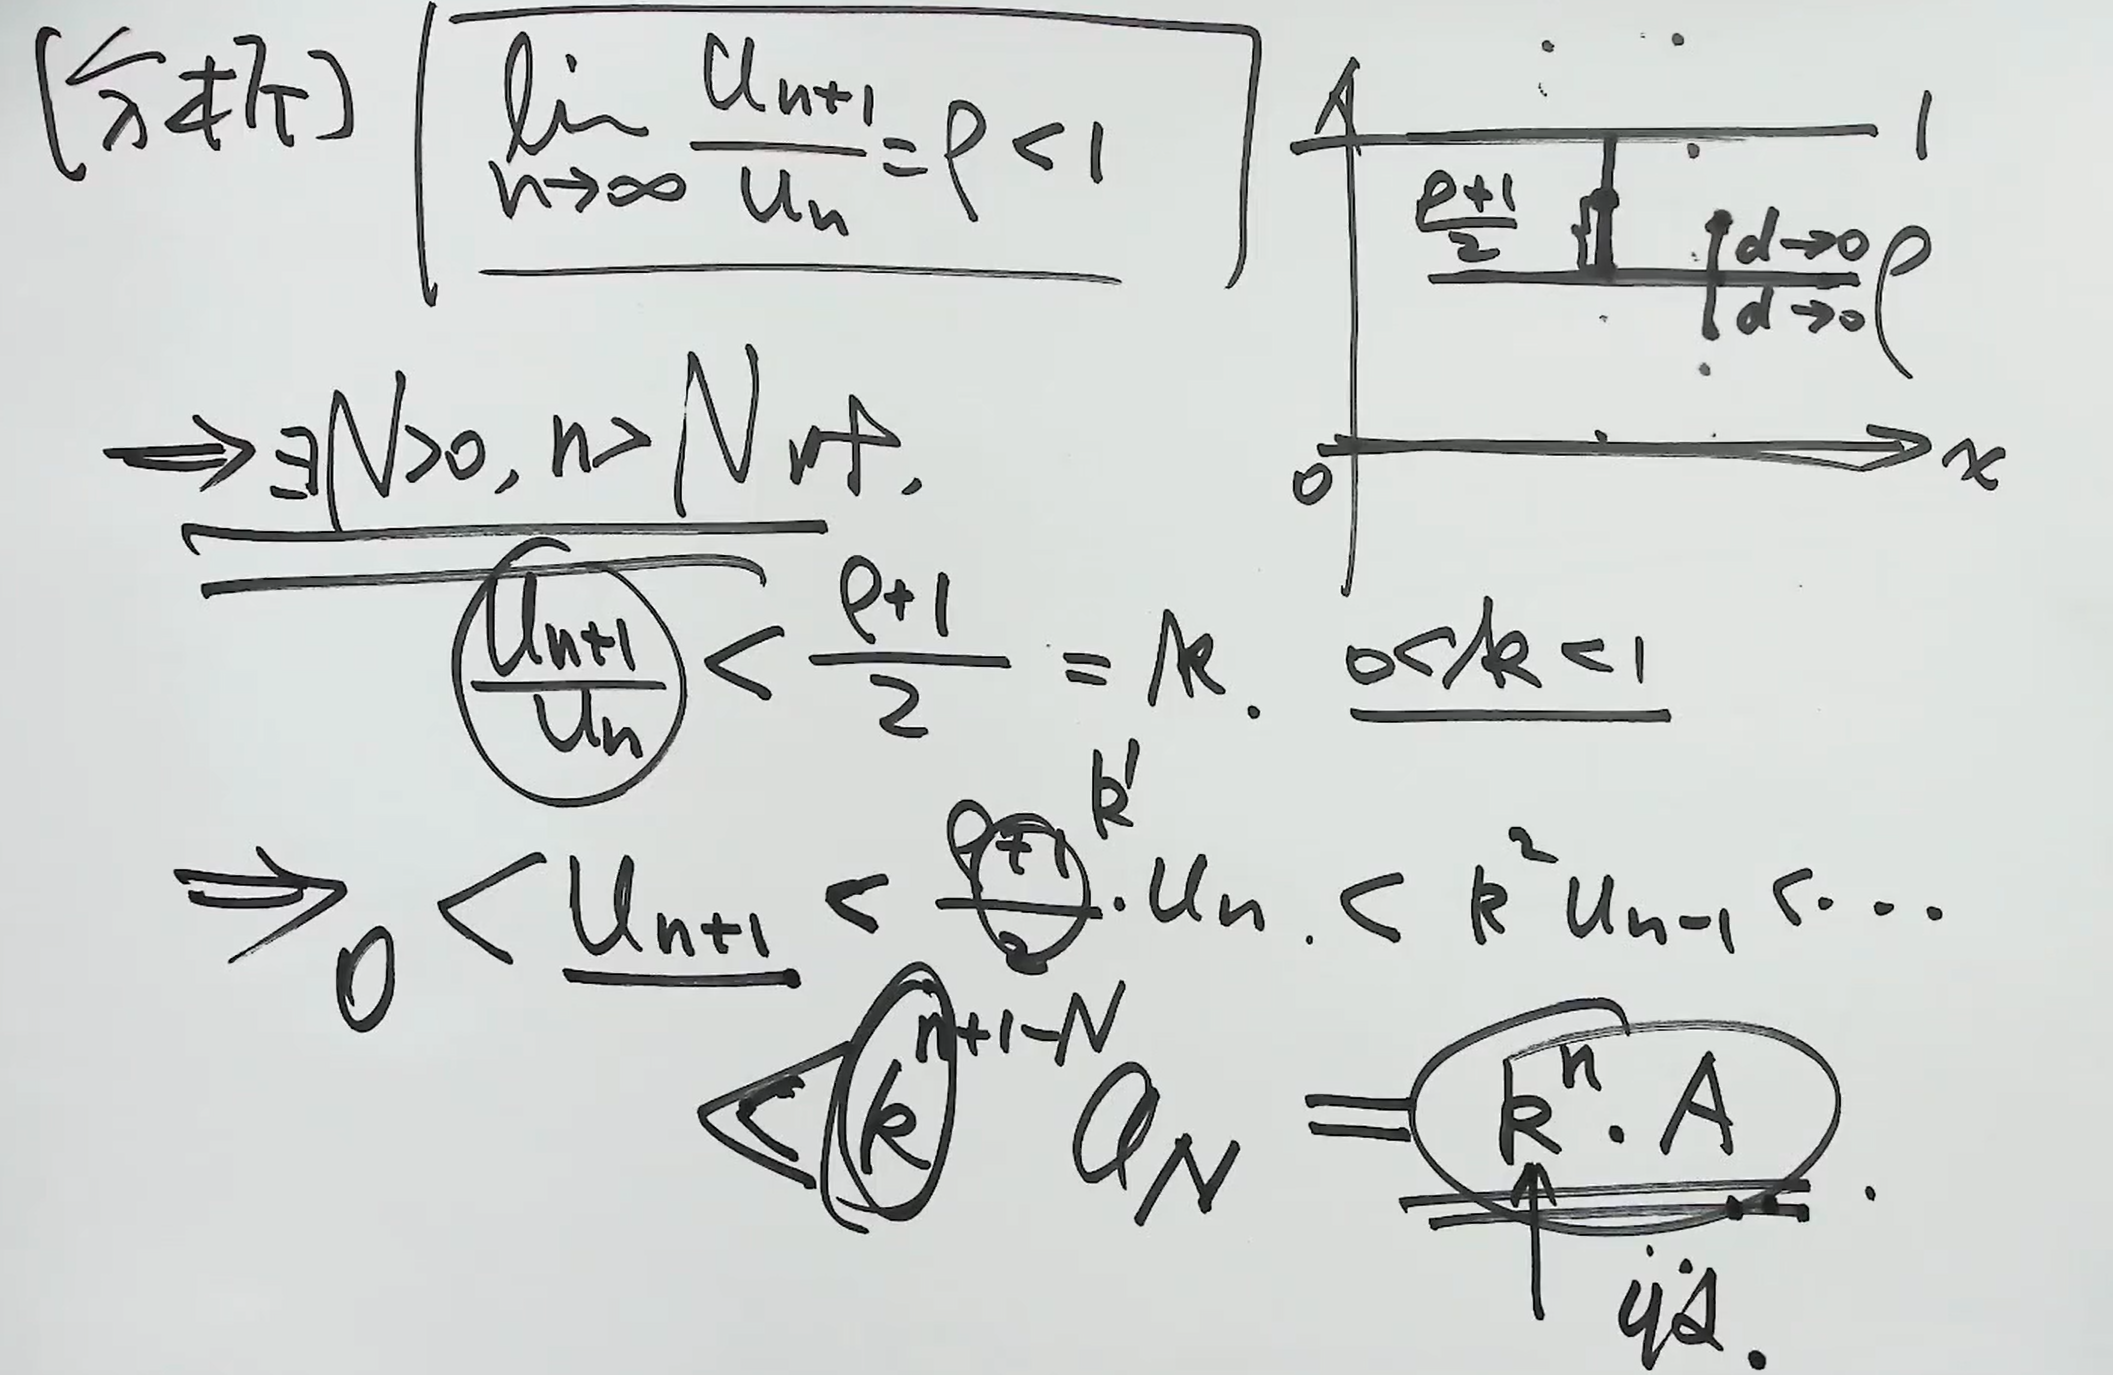 [分析] lim n→∞ Un+1/Un = ρ < 1
1
ρ+1/2
d→0
d→0 ρ
0 x
⇒ ∃N>0, n>N 时,
Un+1/Un < ρ+1/2 = k. 0<k<1
k'
⇒ 0 < Un+1 < ρ+1/2 · Un. < k² Un-1 < · · ·
< k^n+1-N aN = k^n · A .
收敛.